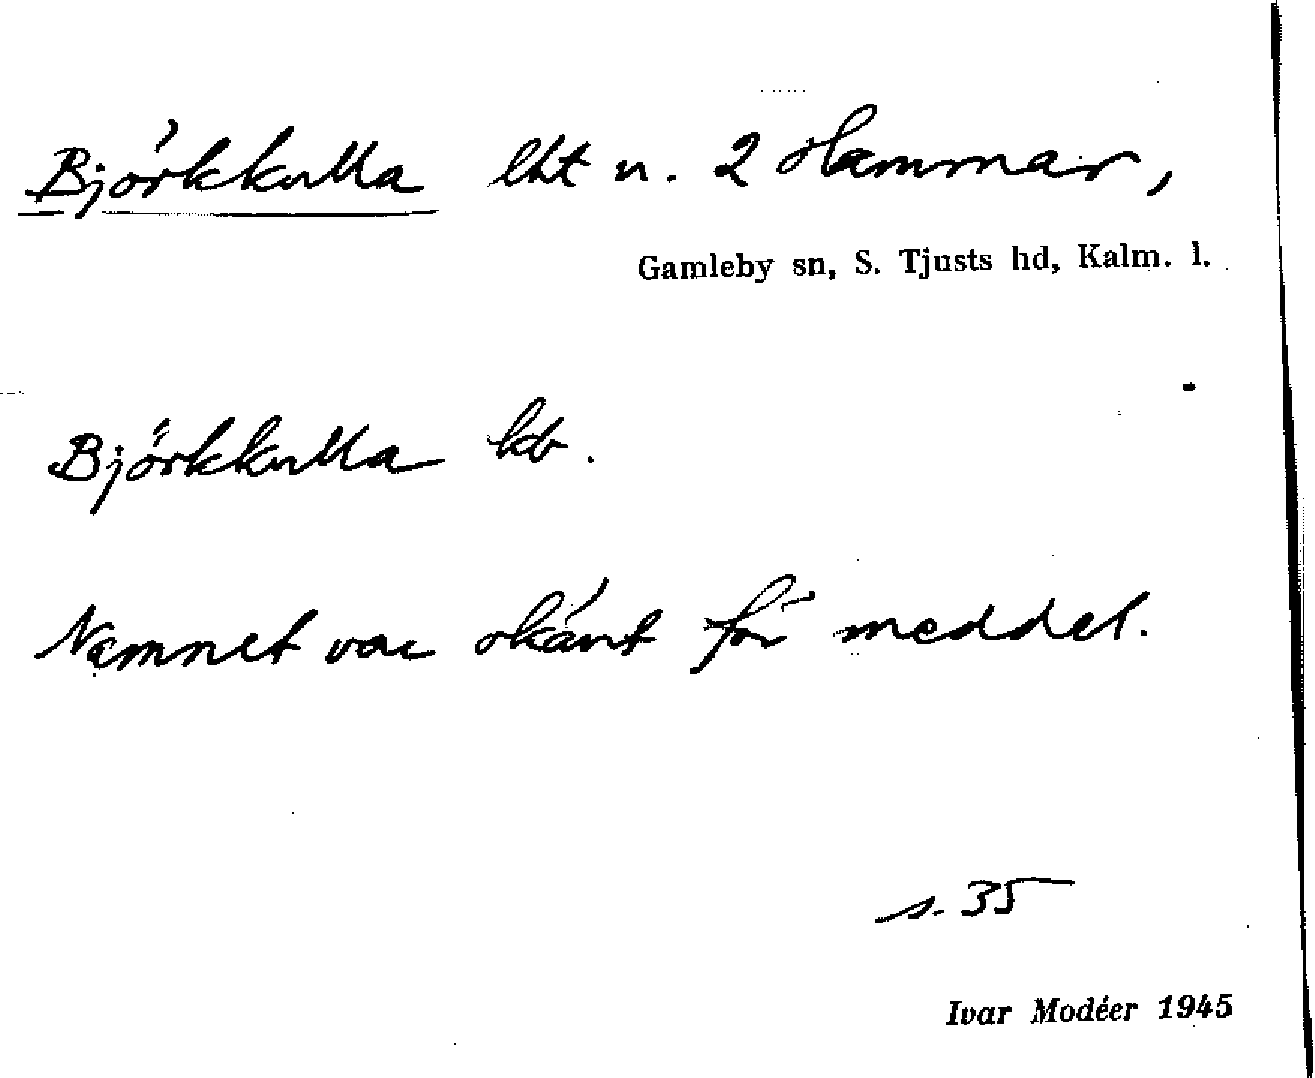 Björkkulla lht u. 2 Hammar,
Gamleby sn, S. Tjusts hd, Kalm. l.
Björkkulla kb.
Namnet var okänt för meddel.
s. 35
Ivar Modéer 1945